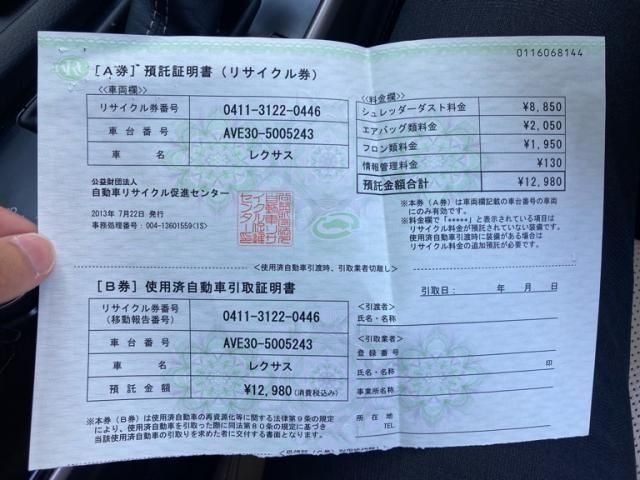 0116068144
[A券] 預託証明書 (リサイクル券)
<<車両欄>>
リサイクル券番号 0411-3122-0446
車台番号 AVE30-5005243
車名 レクサス
公益財団法人
自動車リサイクル促進センター
2013年 7月22日 発行
事務処理番号：004-13601559<1S>
<<料金欄>>
シュレッダーダスト料金 ¥8,850
エアバッグ類料金 ¥2,050
フロン類料金 ¥1,950
情報管理料金 ¥130
預託金額合計 ¥12,980
※本券（A券）は車両欄記載の車台番号の車両
にのみ有効です。
※料金欄で「*****」と表示されている項目は
リサイクル料金が預託されていない装備です。
使用済自動車引渡時に装備がある場合は
リサイクル料金の追加預託が必要です。
<使用済自動車引渡時、引取業者切離し>
[B券] 使用済自動車引取証明書
リサイクル券番号
(移動報告番号) 0411-3122-0446
車台番号 AVE30-5005243
車名 レクサス
預託金額 ¥12,980 (消費税込み)
※本券（B券）は使用済自動車の再資源化等に関する法律第9条の規定
により、使用済自動車を引取った際に同法第80条の規定に基づき
当該使用済自動車の引取りを求めた者に交付する書面となります。
引取日： 年 月 日
<引渡者>
氏名・名称
<引取業者>
登録番号
氏名・名称 印
事業所名称
所在地
TEL